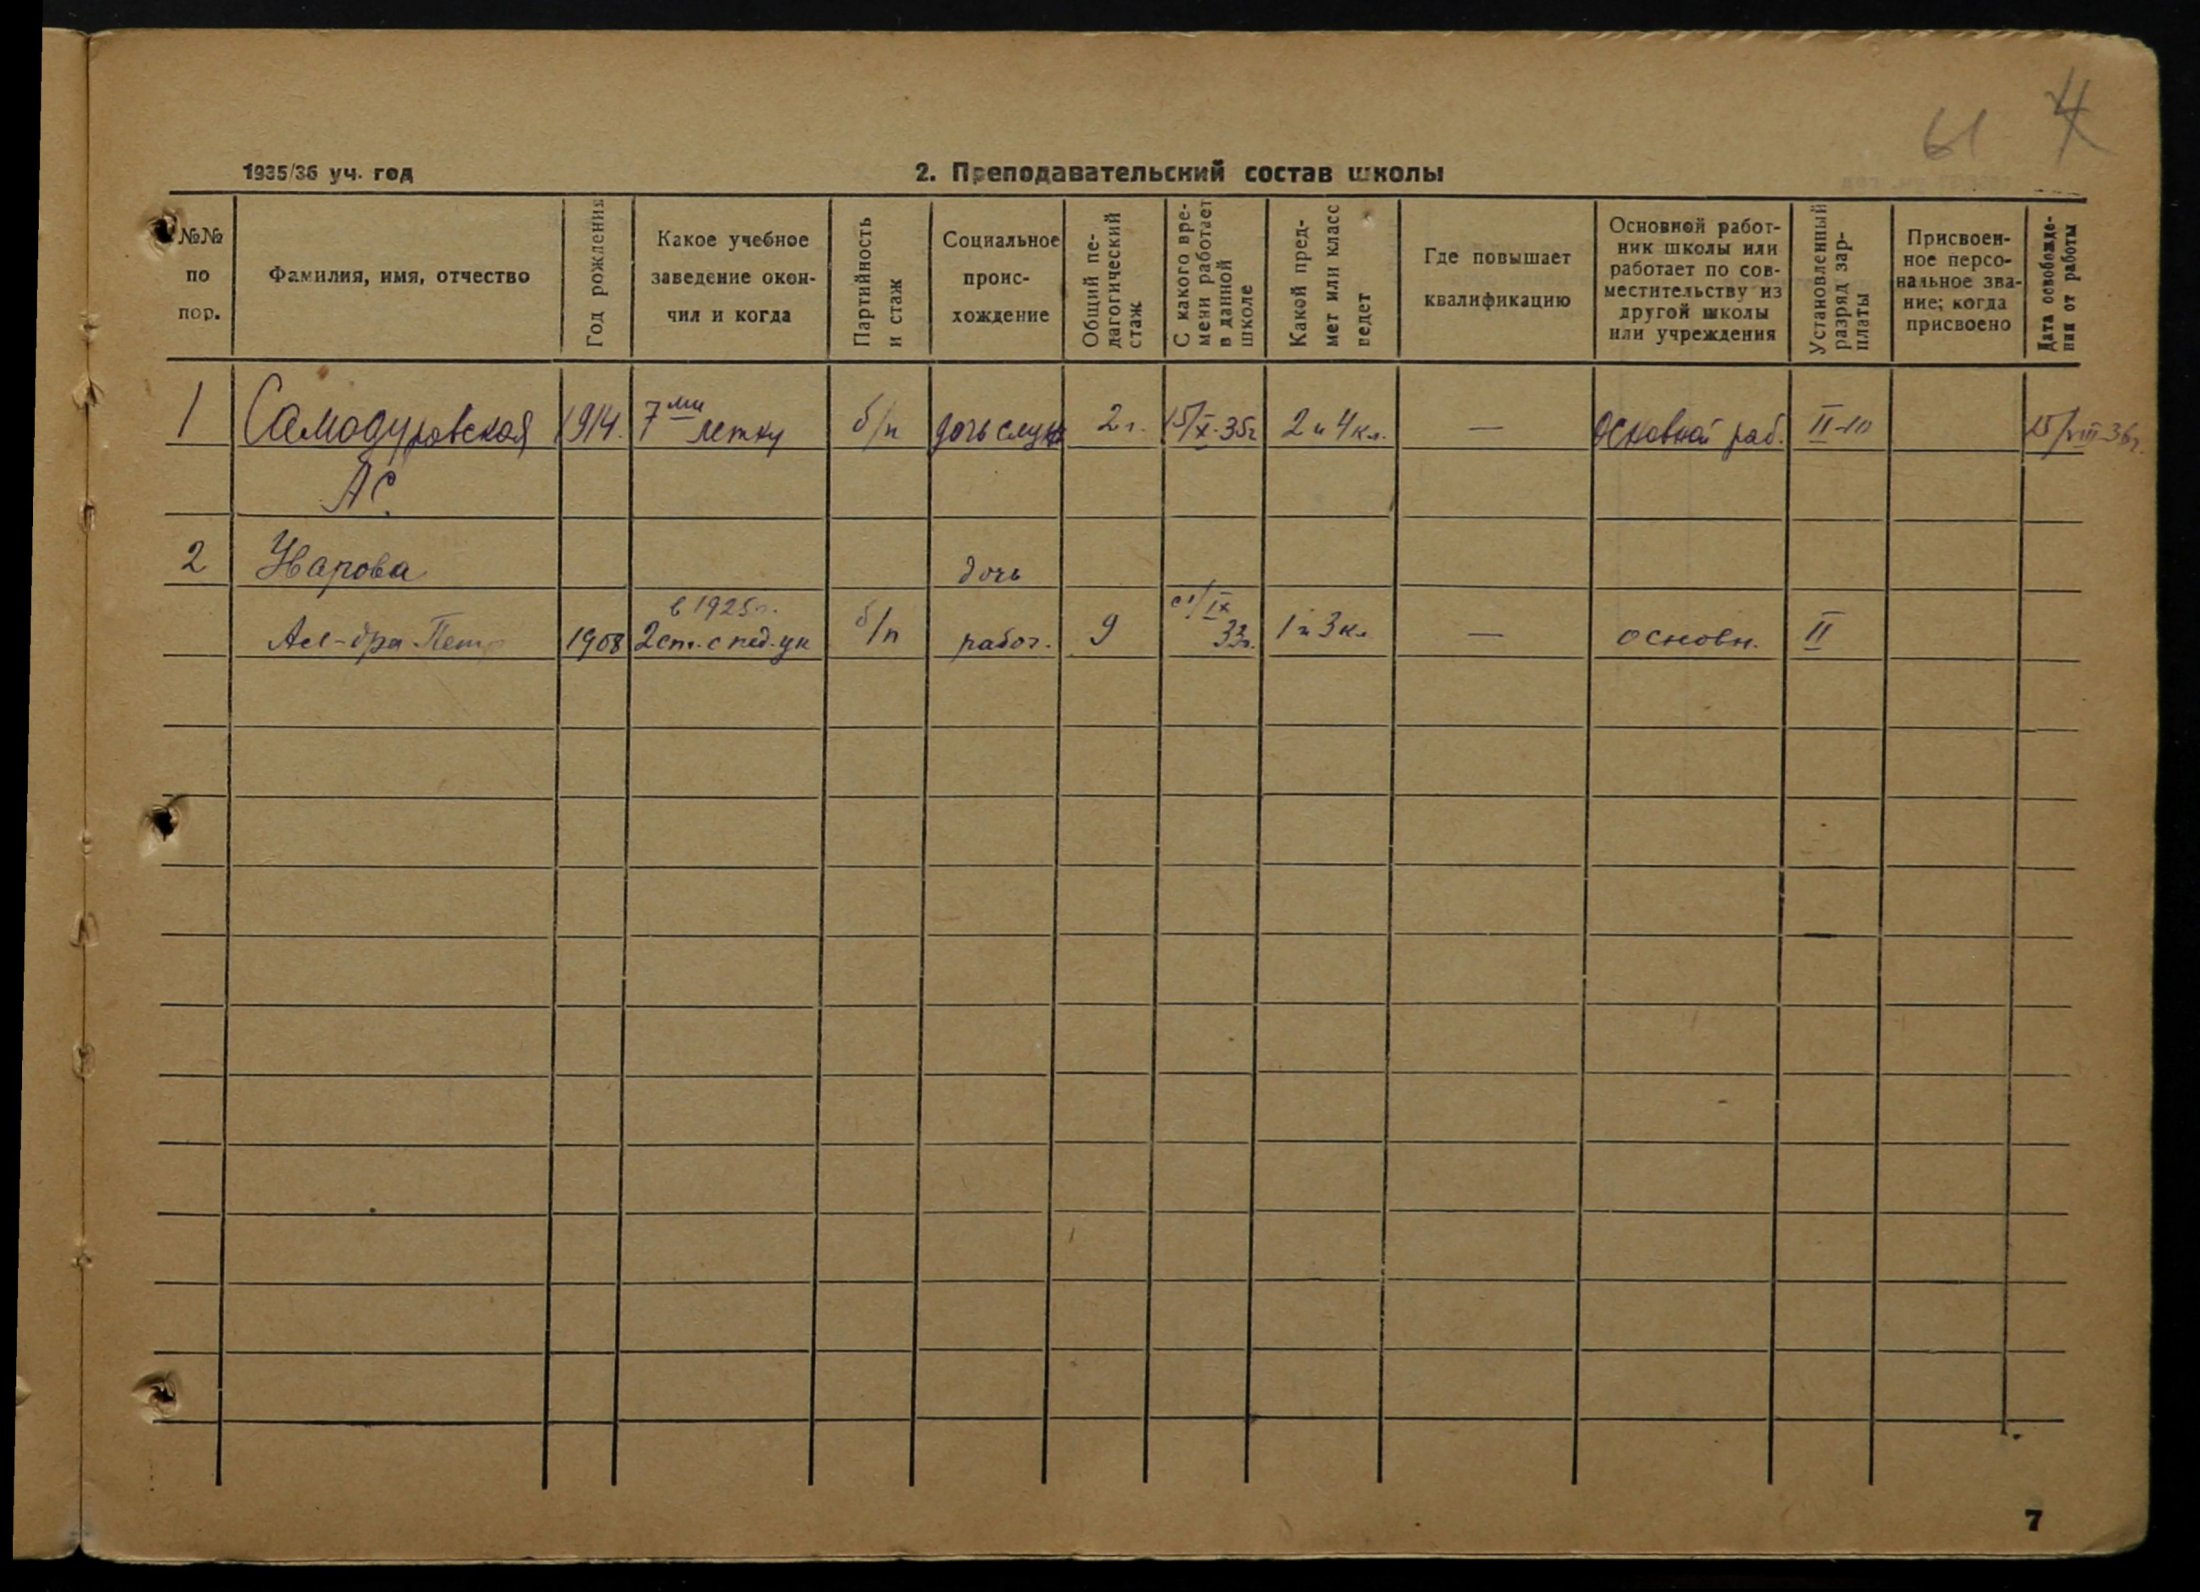 61 4
1935/36 уч. год
2. Преподавательский состав школы
№№ по пор.
Фамилия, имя, отчество
Год рождения
Какое учебное заведение окон-
чил и когда
Партийность и стаж
Социальное проис-
хождение
Общий пе-
дагогический стаж
С какого вре-
мени работает в данной школе
Какой пред-
мет или класс ведет
Где повышает квалификацию
Основной работ-
ник школы или
работает по сов-
местительству из
другой школы
или учреждения
Установленный разряд зар-
платы
Присвоен-
ное персо-
нальное зва-
ние; когда
присвоено
Дата освобожде-
ния от работы
1 Самодуровская 1914. 7ми летку б/п дочь служ 2 г. 15/X-35г 2 и 4 кл. — Основной раб. II-го 15/VIII-36г.
А С.
2 Уварова дочь
Ал-дра Петр 1908 в 1925г. 2 ст. с пед. ук б/п рабоч. 9 с 1/IX 33г. 1 и 3 кл. — основн. II
7